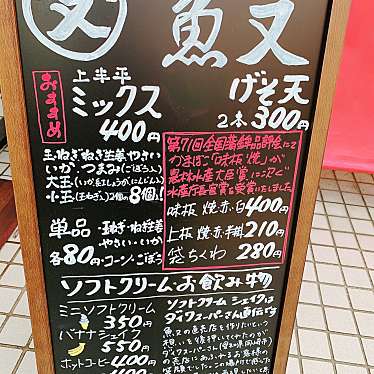 又 魚又
おすすめ
上半平
ミックス
400円
玉ねぎ・ねぎ生姜・やさい
いか・つまみ(ごぼう)
大玉(いか、紅しょうが、にんじん)
小玉(玉ねぎ)2個の8個入!
単品・玉ねぎ・ねぎ生姜
・やさい・いか
各80円・コーン・ごぼう
げそ天
2本300円
第71回全国蒲鉾品評会にて
かまぼこ「味板 焼」が
農林水産大臣賞に次ぐ
水産庁長官賞を受賞いたしました
味板 焼 赤・白400円
上板 焼 赤 210円
袋 ちくわ 280円
ソフトクリーム・お飲み物
ミニソフトクリーム
350円
バナナシェイク
550円
ホットコーヒー400円
400
ソフトクリーム シェイクは
ダイワスーパーさん直伝です
魚又の直売店を作りたいという
想いを後押ししてくれたのが
ダイワスーパーさん(愛知県岡崎市)
の売店にあふれるお客様の